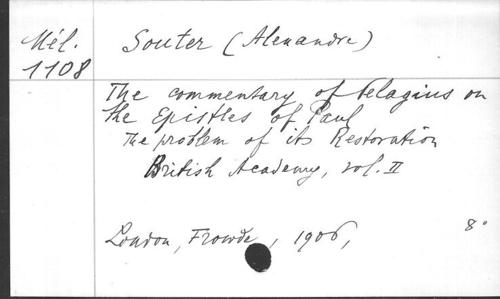 Mél.
1108
Souter (Alexandre)
The commentary of Pelagius on
the Epistles of Paul
The problem of its Restoration
British Academy, vol. II
London, Frowde, 1906,
8°